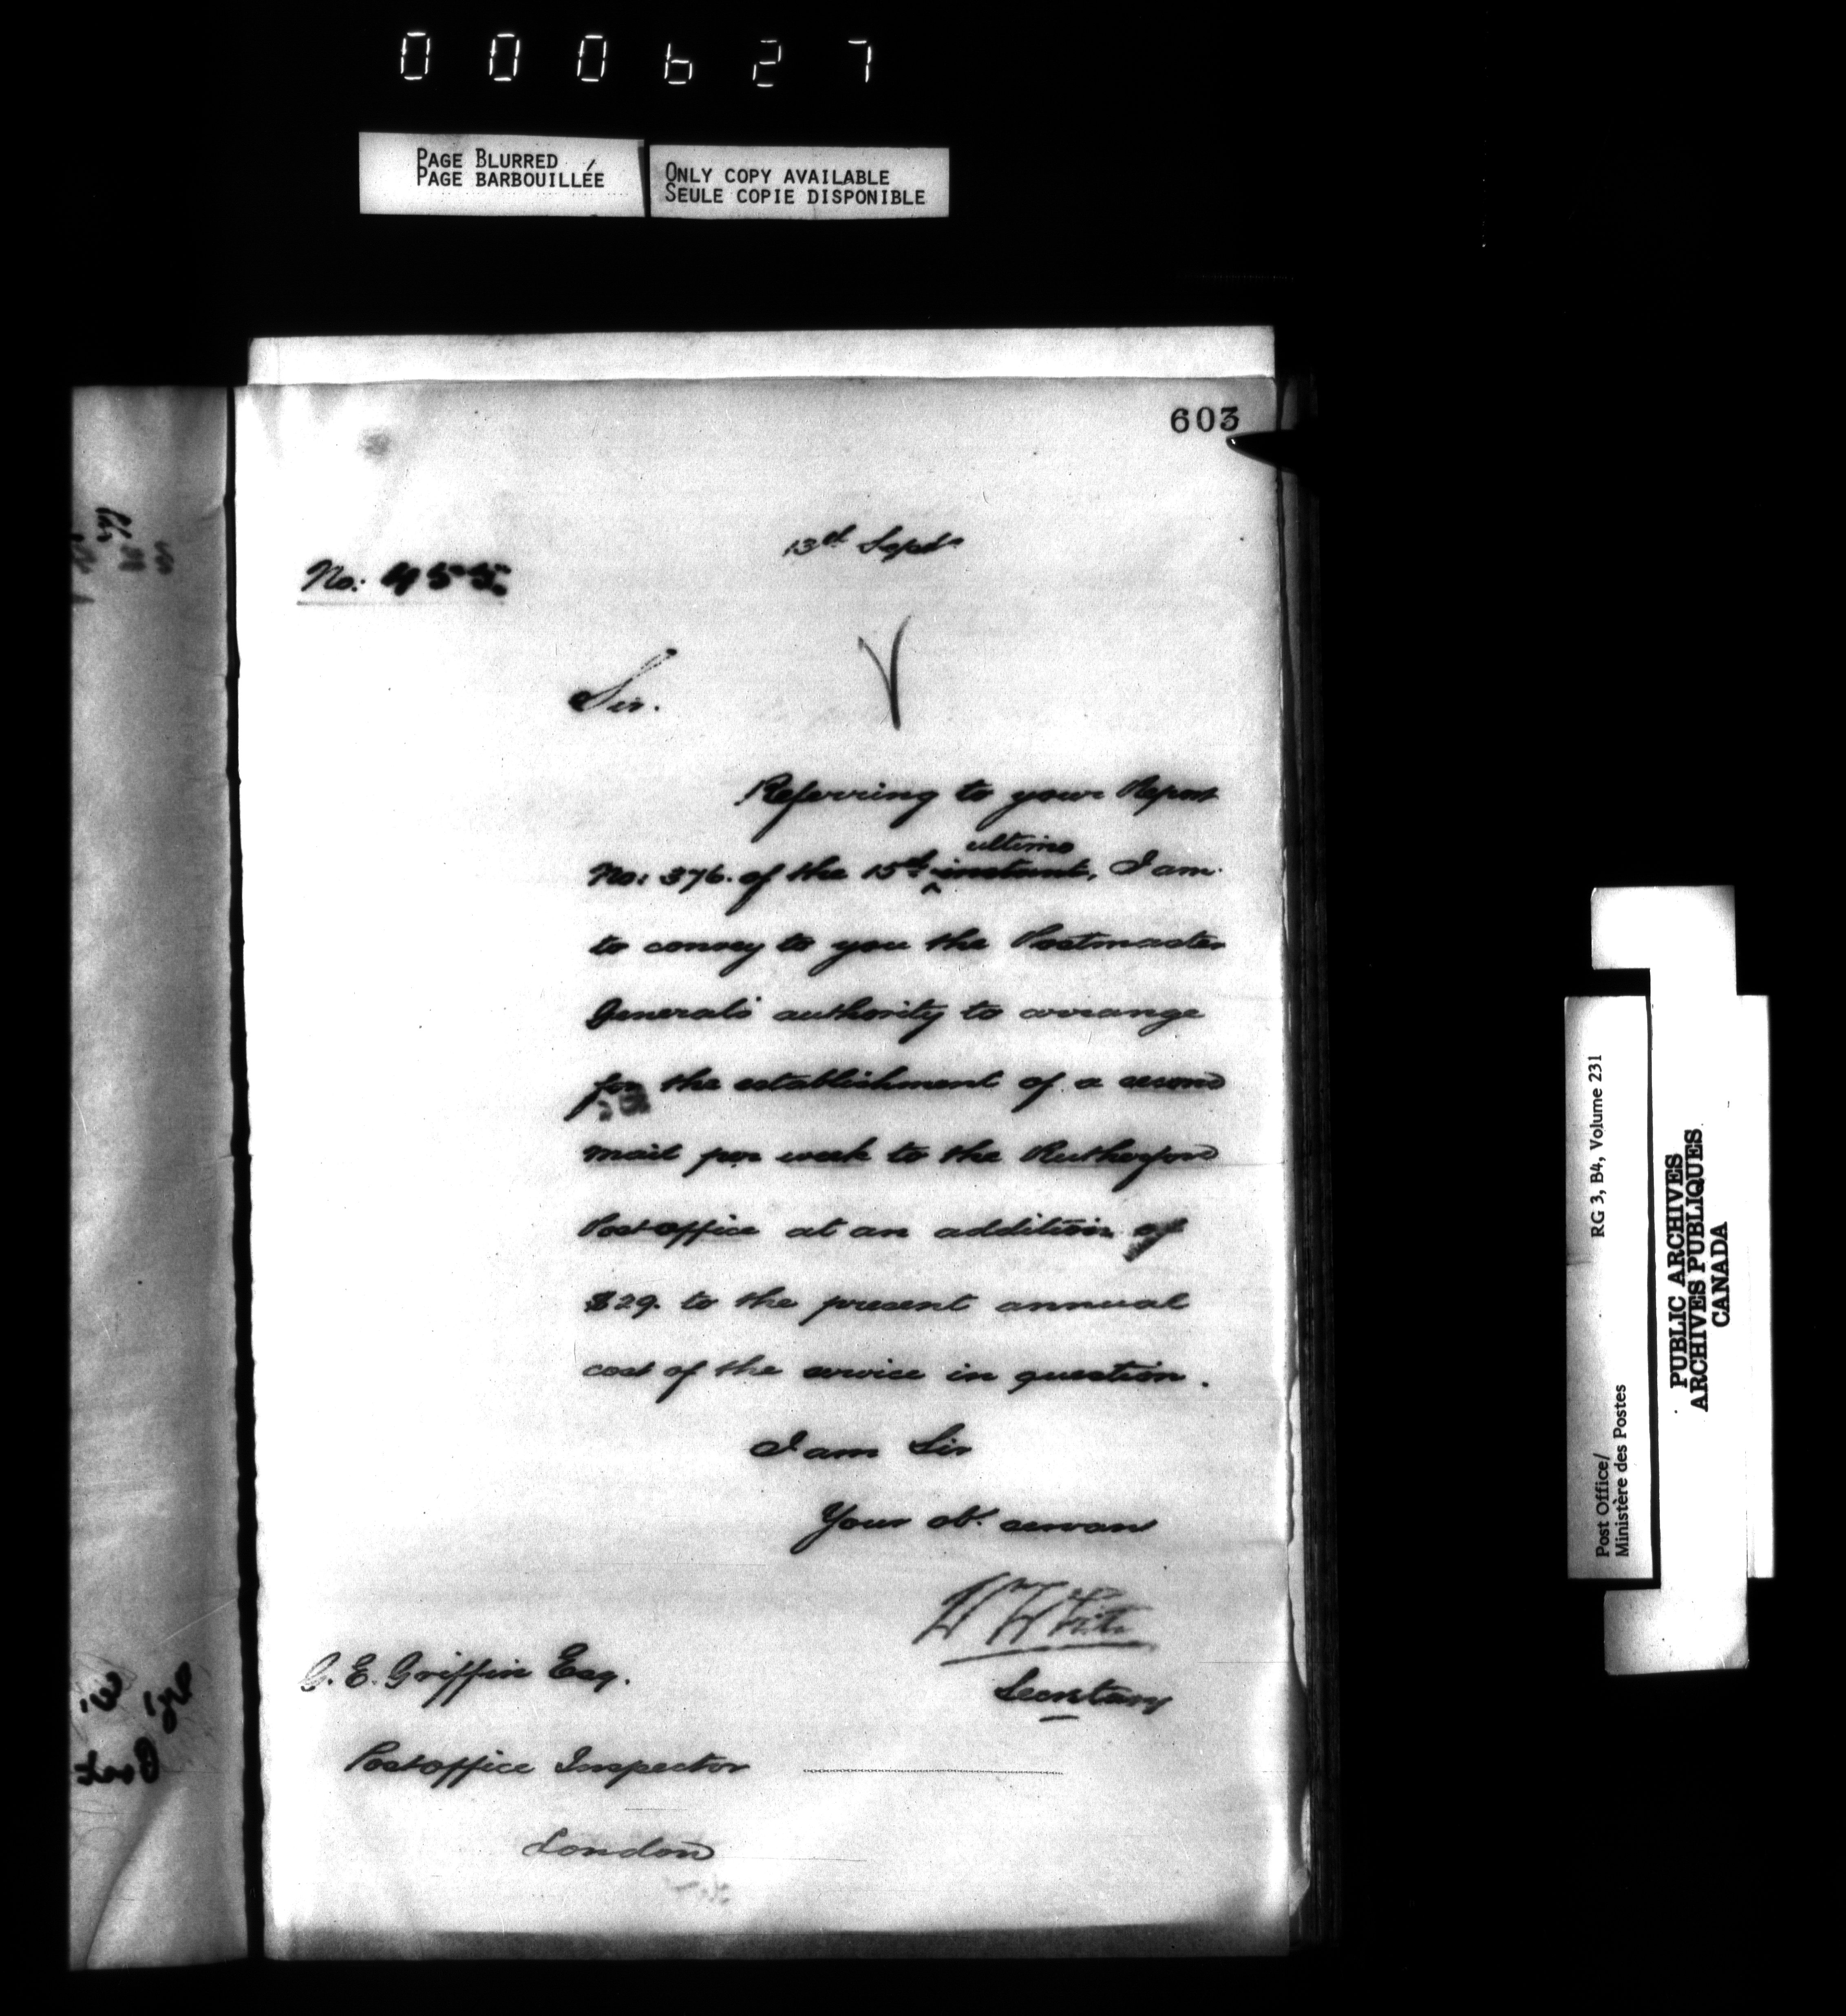 000627
PAGE BLURRED
PAGE BARBOUILLÉE
ONLY COPY AVAILABLE
SEULE COPIE DISPONIBLE
603
13th Sept
No: 455.
Sir.
Referring to your Report
ultimo
No: 376. of the 15th instant, I am
to convey to you the Postmaster
General's authority to arrange
for the establishment of a second
mail per week to the Rutherford
Postoffice at an addition of
$29. to the present annual
cost of the service in question.
I am Sir
Your obt. servant
Secretary
G. E. Griffin Esq.
Postoffice Inspector
London
Post Office/
Ministère des Postes
RG 3, B4, Volume 231
PUBLIC ARCHIVES
ARCHIVES PUBLIQUES
CANADA